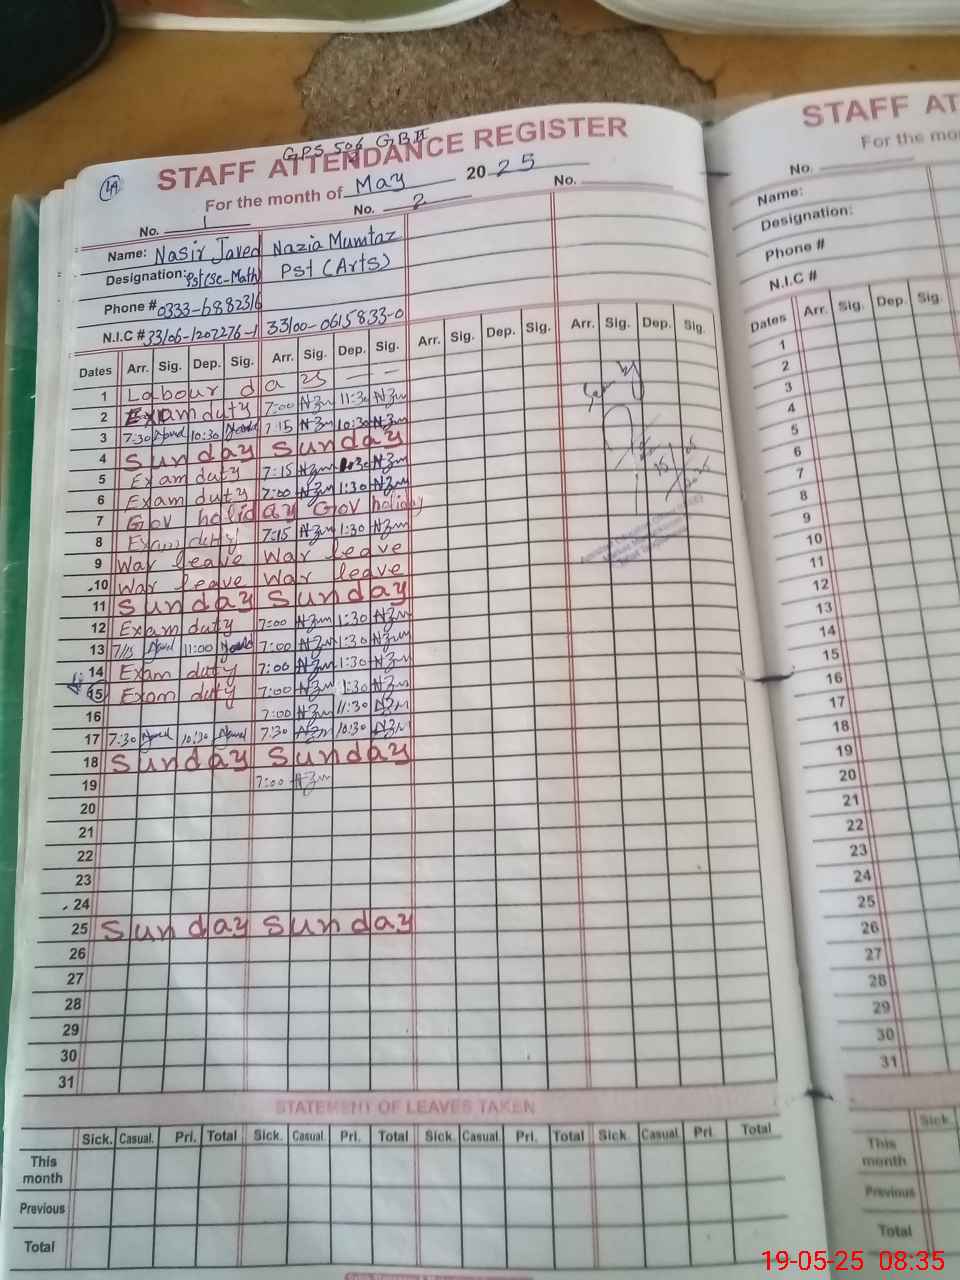 GPS 506 GB II
STAFF ATTENDANCE REGISTER
For the month of May 2025
No. 1 No. 2 No.
Name: Nasir Javed Nazia Mumtaz
Designation: Pst (Sc-Math) Pst (Arts)
Phone # 0333-6882316
N.I.C # 33106-1207276-1 33100-0615833-0
Dates Arr. Sig. Dep. Sig. Arr. Sig. Dep. Sig. Arr. Sig. Dep. Sig. Arr. Sig. Dep. Sig.
1 Labour da
2 Exam duty 7:00 11:30
3 7:30 10:30 7:15 10:30
4 Sunday Sunday
5 Exam duty 7:15
6 Exam duty 7:00 1:30
7 Gov holiday Gov holiday
8 Exam duty 7:15 1:30
9 War leave War leave
10 War leave War leave
11 Sunday Sunday
12 Exam duty 7:00 1:30
13 7/15 11:00 7:00 1:30
14 Exam duty 7:00 1:30
15 Exam duty 7:00 1:30
16 7:00 11:30
17 7:30 10:30 7:30 10:30
18 Sunday Sunday
19 7:00
20
21
22
23
24
25 Sunday Sunday
26
27
28
29
30
31
STATEMENT OF LEAVES TAKEN
Sick. Casual. Pri. Total Sick. Casual. Pri. Total Sick. Casual. Pri. Total Sick. Casual. Pri. Total
This month
Previous
Total
STAFF AT
For the mo
No.
Name:
Designation:
Phone #
N.I.C #
Dates Arr. Sig. Dep. Sig.
1
2
3
4
5
6
7
8
9
10
11
12
13
14
15
16
17
18
19
20
21
22
23
24
25
26
27
28
29
30
31
Sick.
This month
Previous
Total
19-05-25 08:35